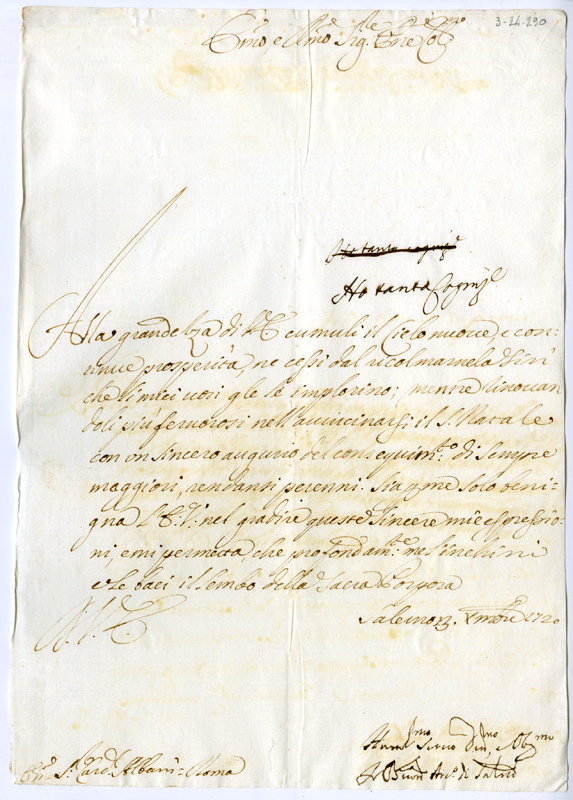 3-24-290
Emo e Rmo Sig.re Sig.re Col.mo
Ho tanta cogniz.e
Ho tanta Cogniz.e
Alla grandezza di V.E. cumuli il Cielo nuove, e con-
tinue prosperità, ne cessi dal ricolmarnela sin
che li miei voti gle le implorino; mentre rinovan
doli più fervorosi nell'avvicinarsi il S. Natale
con un sincero augurio del conseguim.to di sempre
maggiori, rendansi perenni. Sia p me solo beni-
gna l'E.V. nel gradire queste sincere mie espressio-
ni, e mi permetta, che profondam.te me l'inchini
e le baci il lembo della Sacra Porpora
Salerno Xmbre 1720
V.E.
Hum.mo Servo Div.mo Obl.mo
Arc.o di Salerno
Em.o S.r Card. Albani = Roma